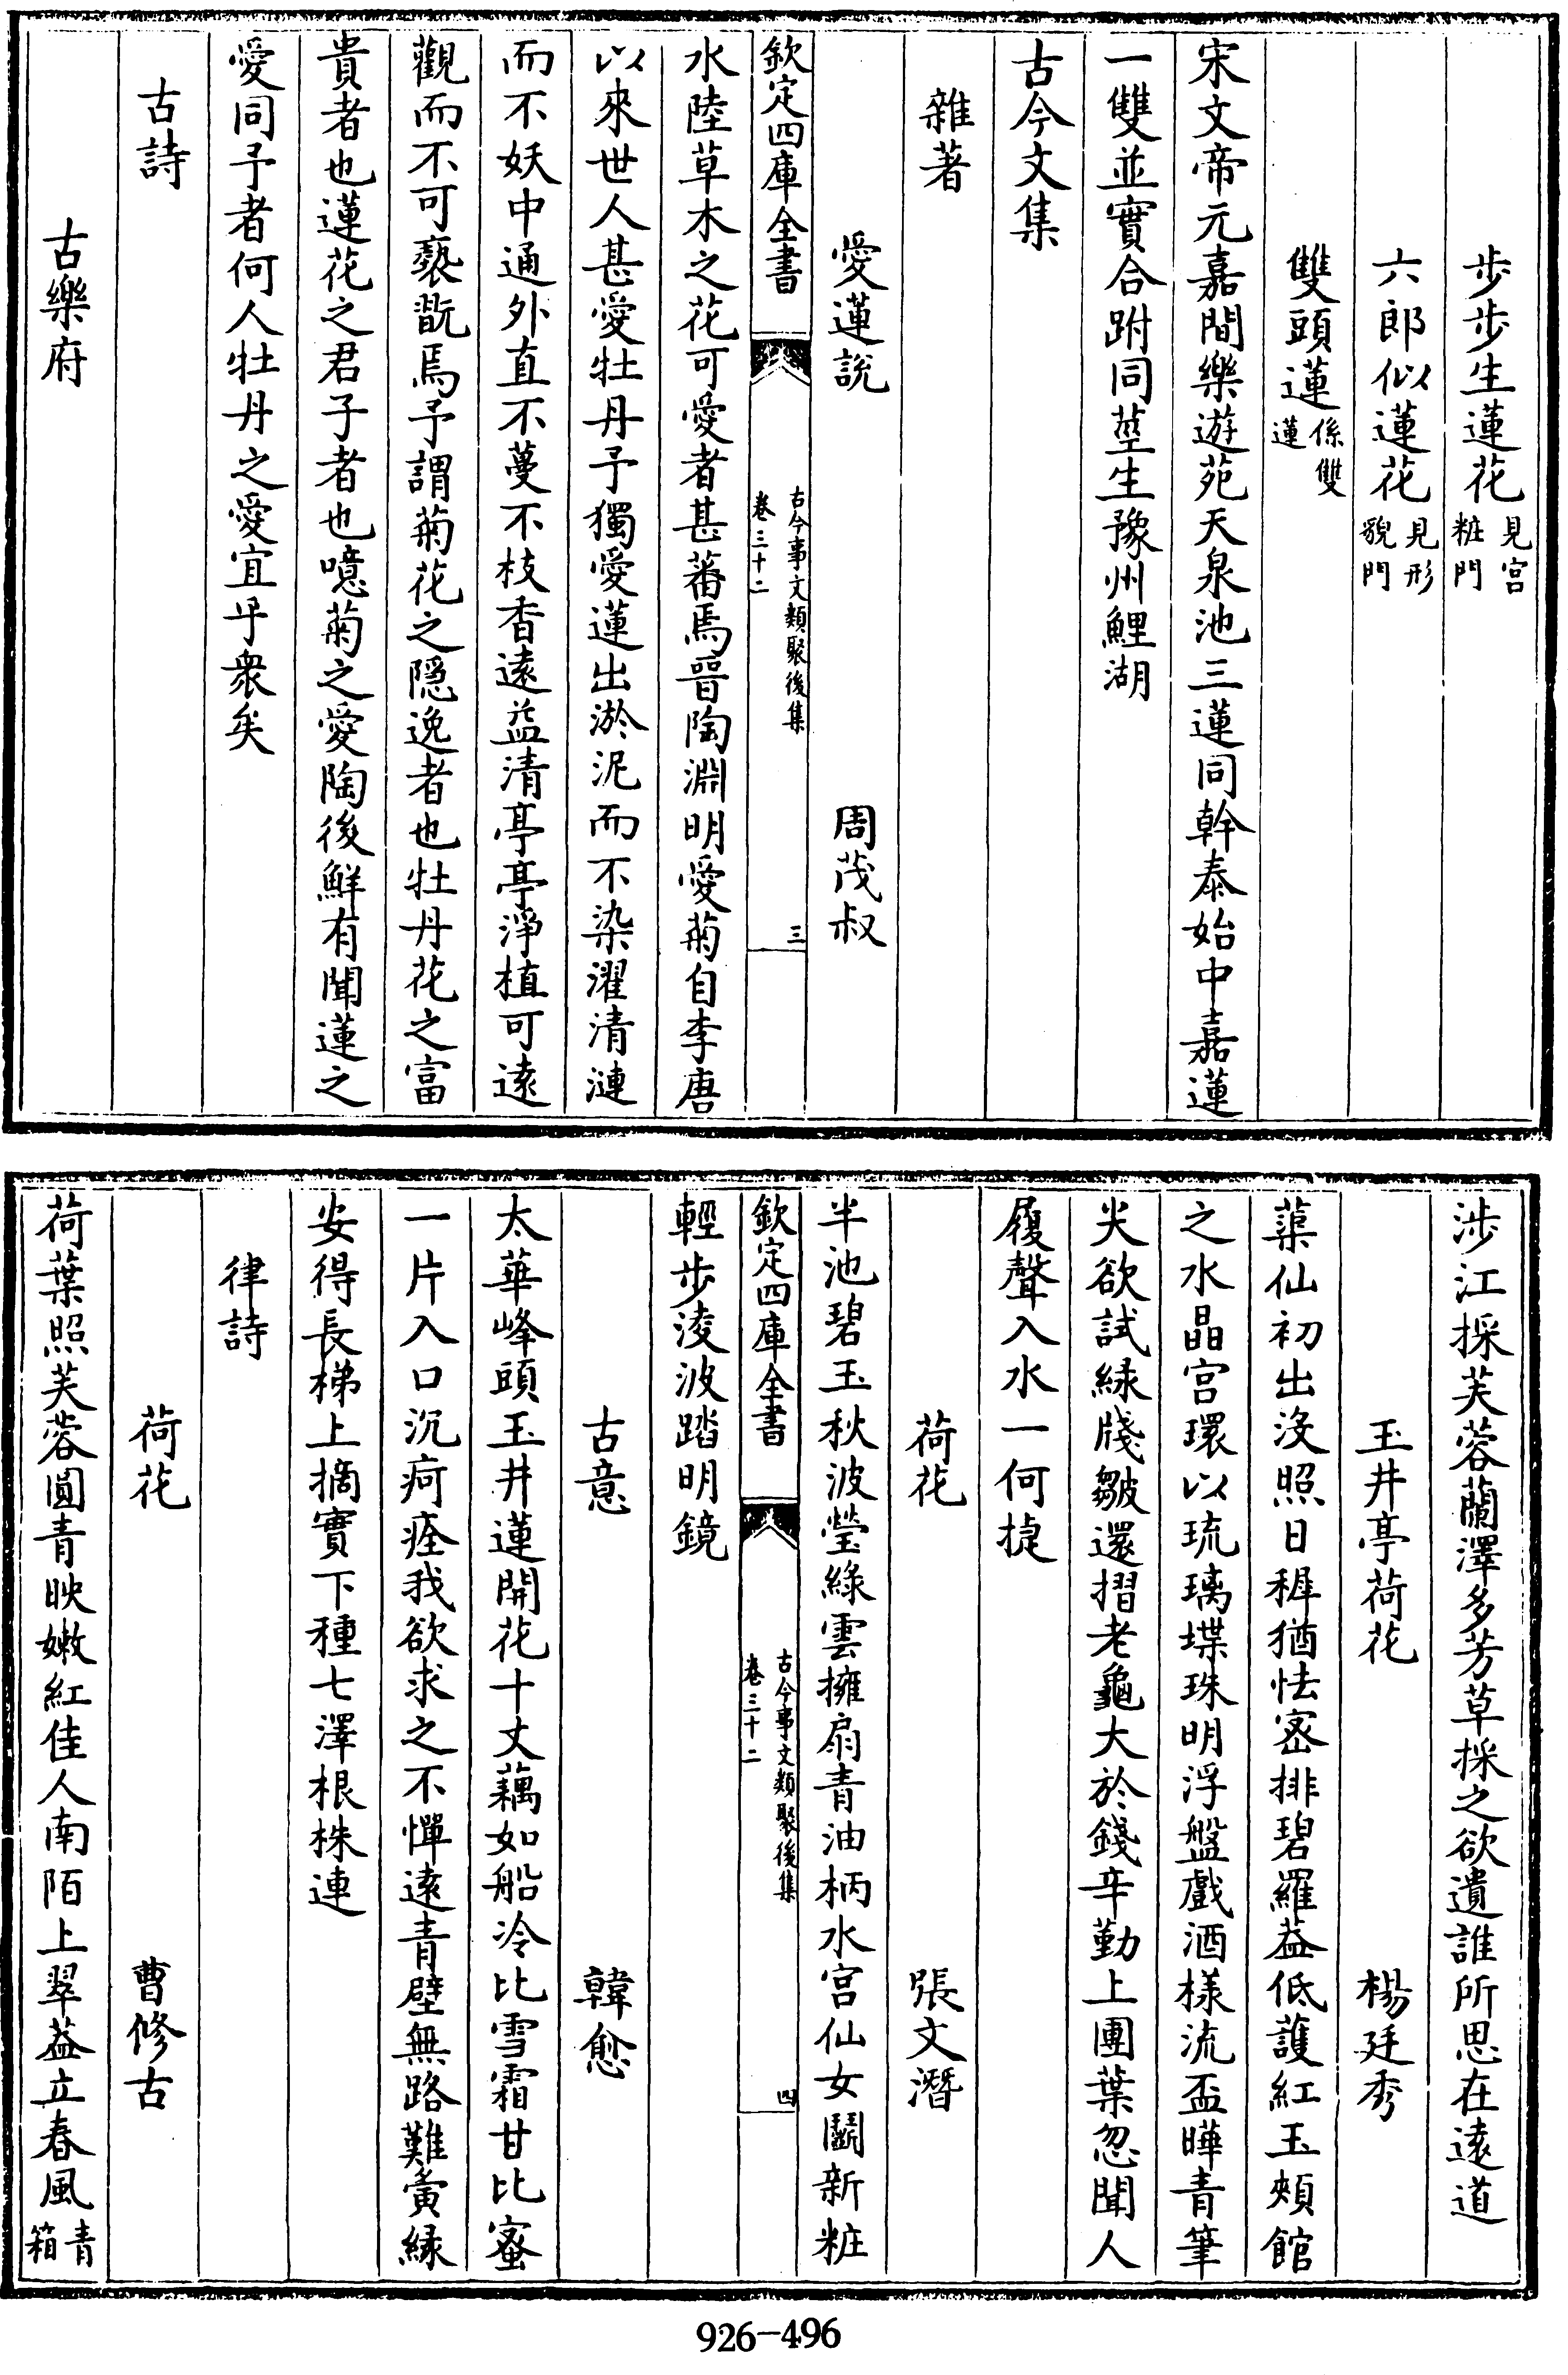 步步生蓮花見宫粧門
六郎似蓮花見形貌門
雙頭蓮係雙蓮
宋文帝元嘉間樂遊苑天泉池三蓮同幹泰始中嘉蓮
一雙並實合跗同莖生豫州鯉湖
古今文集
雜著
愛蓮說 周茂叔
欽定四庫全書 古今事文類聚後集 卷三十二 三
水陸草木之花可愛者甚蕃焉晉陶淵明愛菊自李唐
以來世人甚愛牡丹予獨愛蓮出淤泥而不染濯清漣
而不妖中通外直不蔓不枝香逺益清亭亭淨植可逺
觀而不可褻翫焉予謂菊花之隠逸者也牡丹花之富
貴者也蓮花之君子者也噫菊之愛陶後鮮有聞蓮之
愛同予者何人牡丹之愛宜乎衆矣
古詩
古樂府
涉江採芙蓉蘭澤多芳草採之欲遺誰所思在逺道
玉井亭荷花 楊廷秀
蕖仙初出沒照日穉猶怯宻排碧羅葢低護紅玉頰館
之水晶宫環以琉璃堞珠明浮盤戲酒様流盃曄青筆
尖欲試緑牋皺還摺老龜大於錢辛勤上團葉忽聞人
履聲入水一何捷
荷花 張文潛
半池碧玉秋波瑩綠雲擁扇青油柄水宫仙女鬭新粧
欽定四庫全書 古今事文類聚後集 卷三十二 四
輕步淩波踏明鏡
古意 韓愈
太華峰頭玉井蓮開花十丈藕如船冷比雪霜甘比蜜
一片入口沉疴痊我欲求之不憚逺青壁無路難夤縁
安得長梯上摘實下種七澤根株連
律詩
荷花 曹修古
荷葉照芙蓉圓青映嫩紅佳人南陌上翠葢立春風青箱
926-496